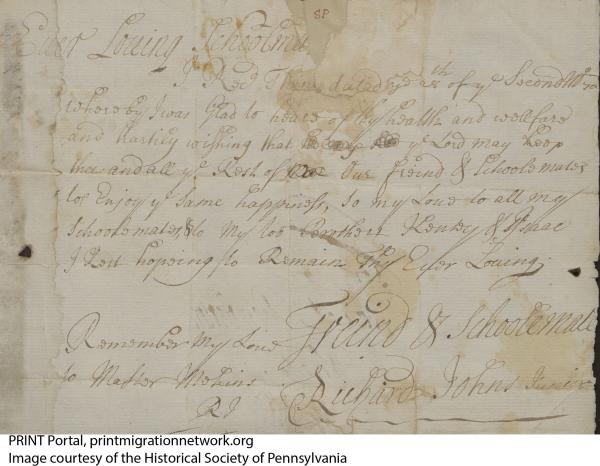 SP
Ever Loving Schoolma
I Recd Thine dated ye 28th of ye Second Mo
whereby I was Glad to heare of thy health and wellfare
and Hartily wishing that ye Lord may keep
thee and all ye Rest of Our Freind & Schoolemates
to Enjoy ye same happiness, so my Love to all my
Schoolemates & to my too Brothers Kensey & Isaac
I Rest hopeing to Remain thy Ever Loving
Freind & Schoolemate
Remember My Love
to Master
Richard Johns Junir
RJ
PRINT Portal, printmigrationnetwork.org
Image courtesy of the Historical Society of Pennsylvania